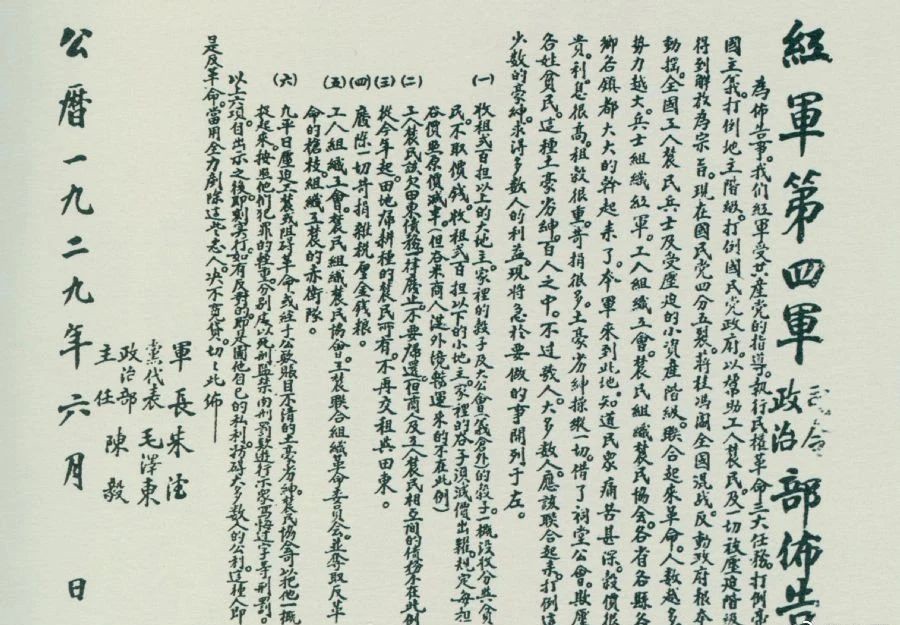 紅軍第四軍司令政治部佈告
為佈告事。我們紅軍受共產党的指導。執行民權革命三大任務。打倒帝
國主義。打倒地主階級。打倒國民党政府。以幫助工人農民及一切被壓迫階級
得到解放為宗旨。現在國民党四分五裂。蔣桂馮閻全國混战。反動政府根本
動搖。全國工人農民兵士及受壓迫的小資產階級。聯合起來革命。人數越多
勢力越大。兵士組織紅軍。工人組織工會。農民組織農民協會。各省各縣各
鄉各鎮都大大的幹起来了。本軍來到此地。知道民眾痛苦甚深。穀價很
貴。利息很高。租穀很重。苛捐很多。土豪劣紳操縱一切。借了祠堂公會。欺壓
各姓貧民。這種土豪劣紳。百人之中。不过数人。大多数人。應該联合起来。打倒這
少数的豪紳。求得多数人的利益。現將急於要做的事開列于左。
(一)收租弍百担以上的大地主。家裡的穀子及大公會(義倉外)的穀子。一概没收。分與貧
民。不取價钱。收租弍百担以下的小地主。家裡的谷子。須減價出糶。規定每担
谷價照原價減半。(但谷米商人從外境办運来的不在此例)
(二)工人農民該欠田東債務。一律廢止。不要歸還。(但商人及工人農民相互間的債務不在此例
(三)從今年起。田地歸耕種的農民所有。不再交租與田東。
(四)廢除一切苛捐雜税厘金錢糧。
(五)工人組織工會。農民組織農民協會。工農联合組織革命委員会。並奪取反革
命的槍枝組織工農的赤衛隊。
(六)凡平日壓迫工農或阻碍革命。或經手公款賬目不清的土豪劣紳。農民協會可以把他一概
捉起來。按照他们犯罪的輕重。分别處以死刑監禁肉刑罰款遊行示眾写悔过字等刑罰。
以上六項。自出示之後。即刻实行。如有反對的。即是圖他自己的私利。妨碍大多数人的公利。這種人即
是反革命。當用全力剷除這些惡人。决不寬貸。切々此佈
軍長 朱德
黨代表 毛澤東
政治部主任 陳毅
公曆一九二九年六月 日